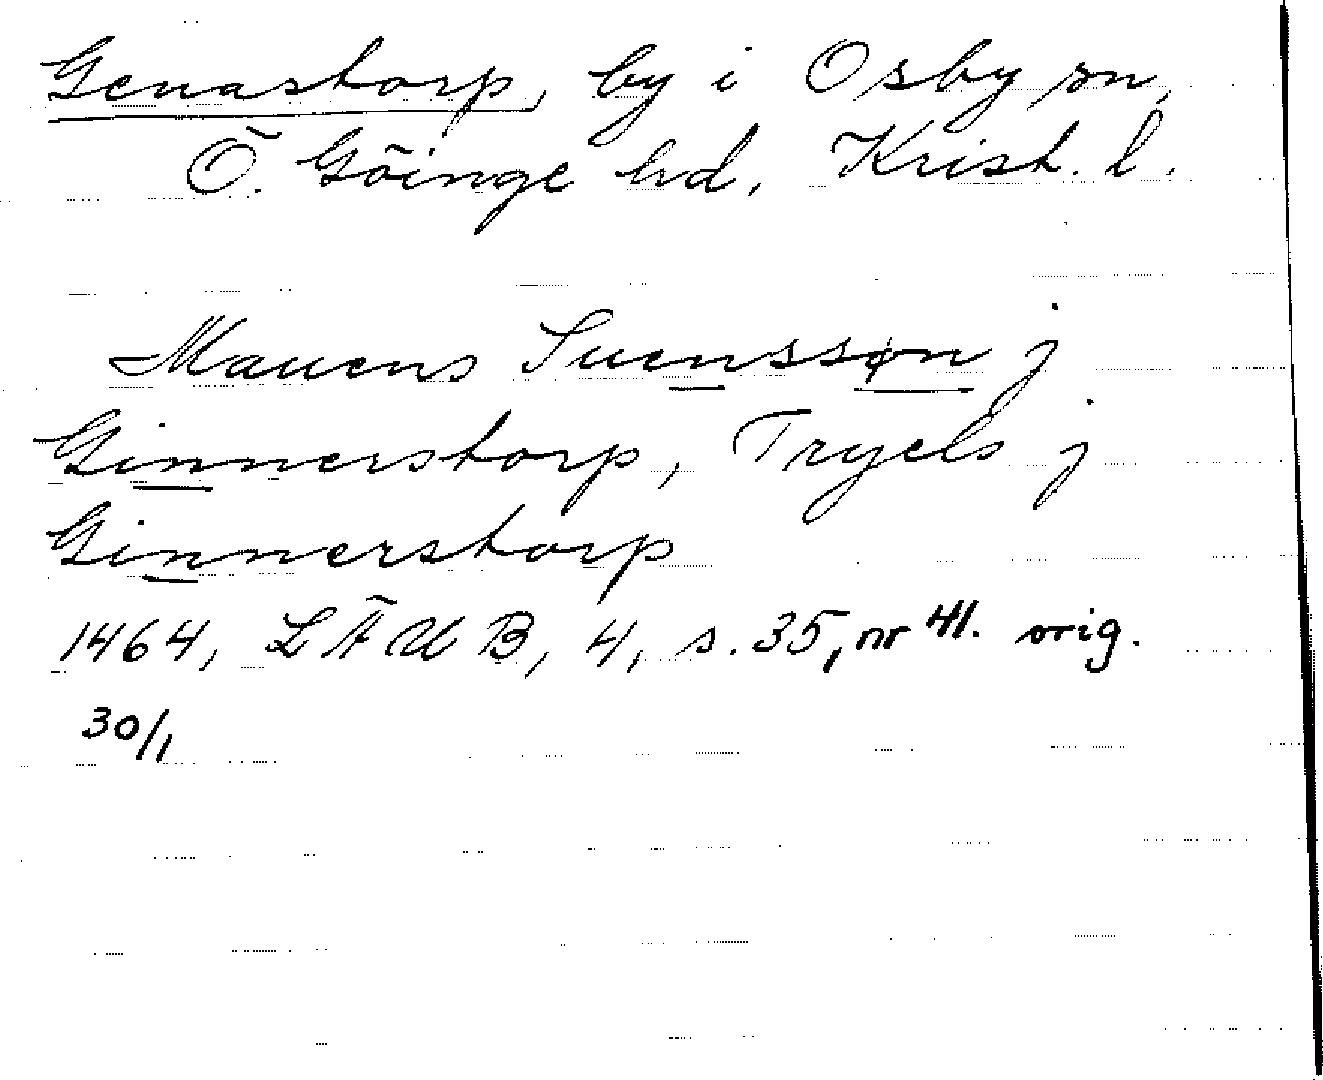 Genastorp, by i Osby sn,
Ö. Göinge hd, Krist. l.
Mauens Suenssøn j
Ginnerstorp, Tryels j
Ginnerstorp
1464, LÄUB, 4, s. 35, nr 41. orig.
30/1